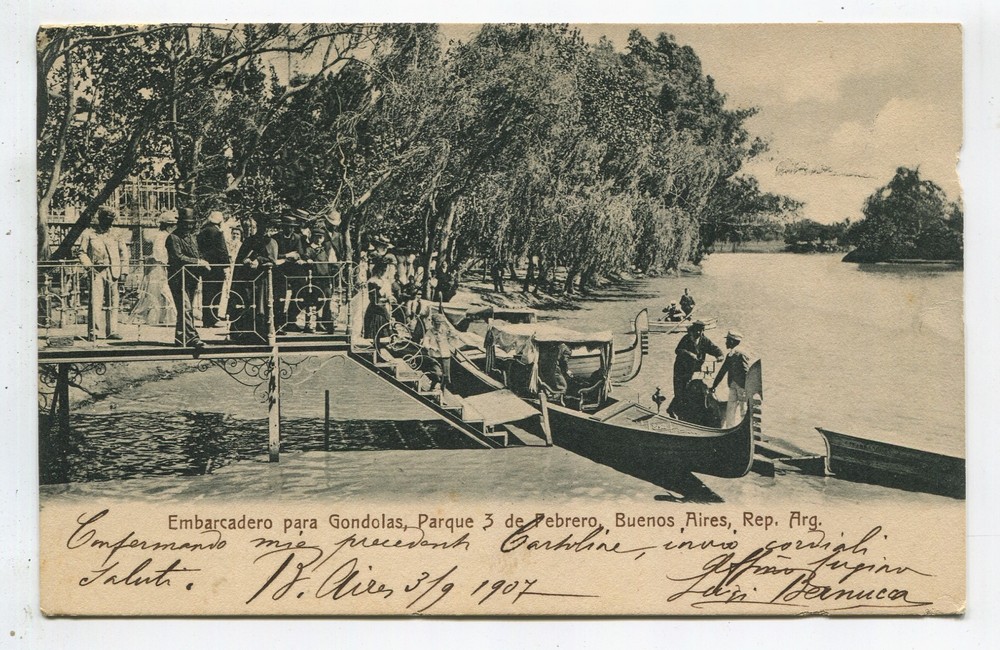 Embarcadero para Gondolas, Parque 3 de Febrero, Buenos Aires, Rep. Arg.
Confermando mie precedenti Cartoline, invio cordiali
Saluti. B. Aires 3/9 1907
Luigi